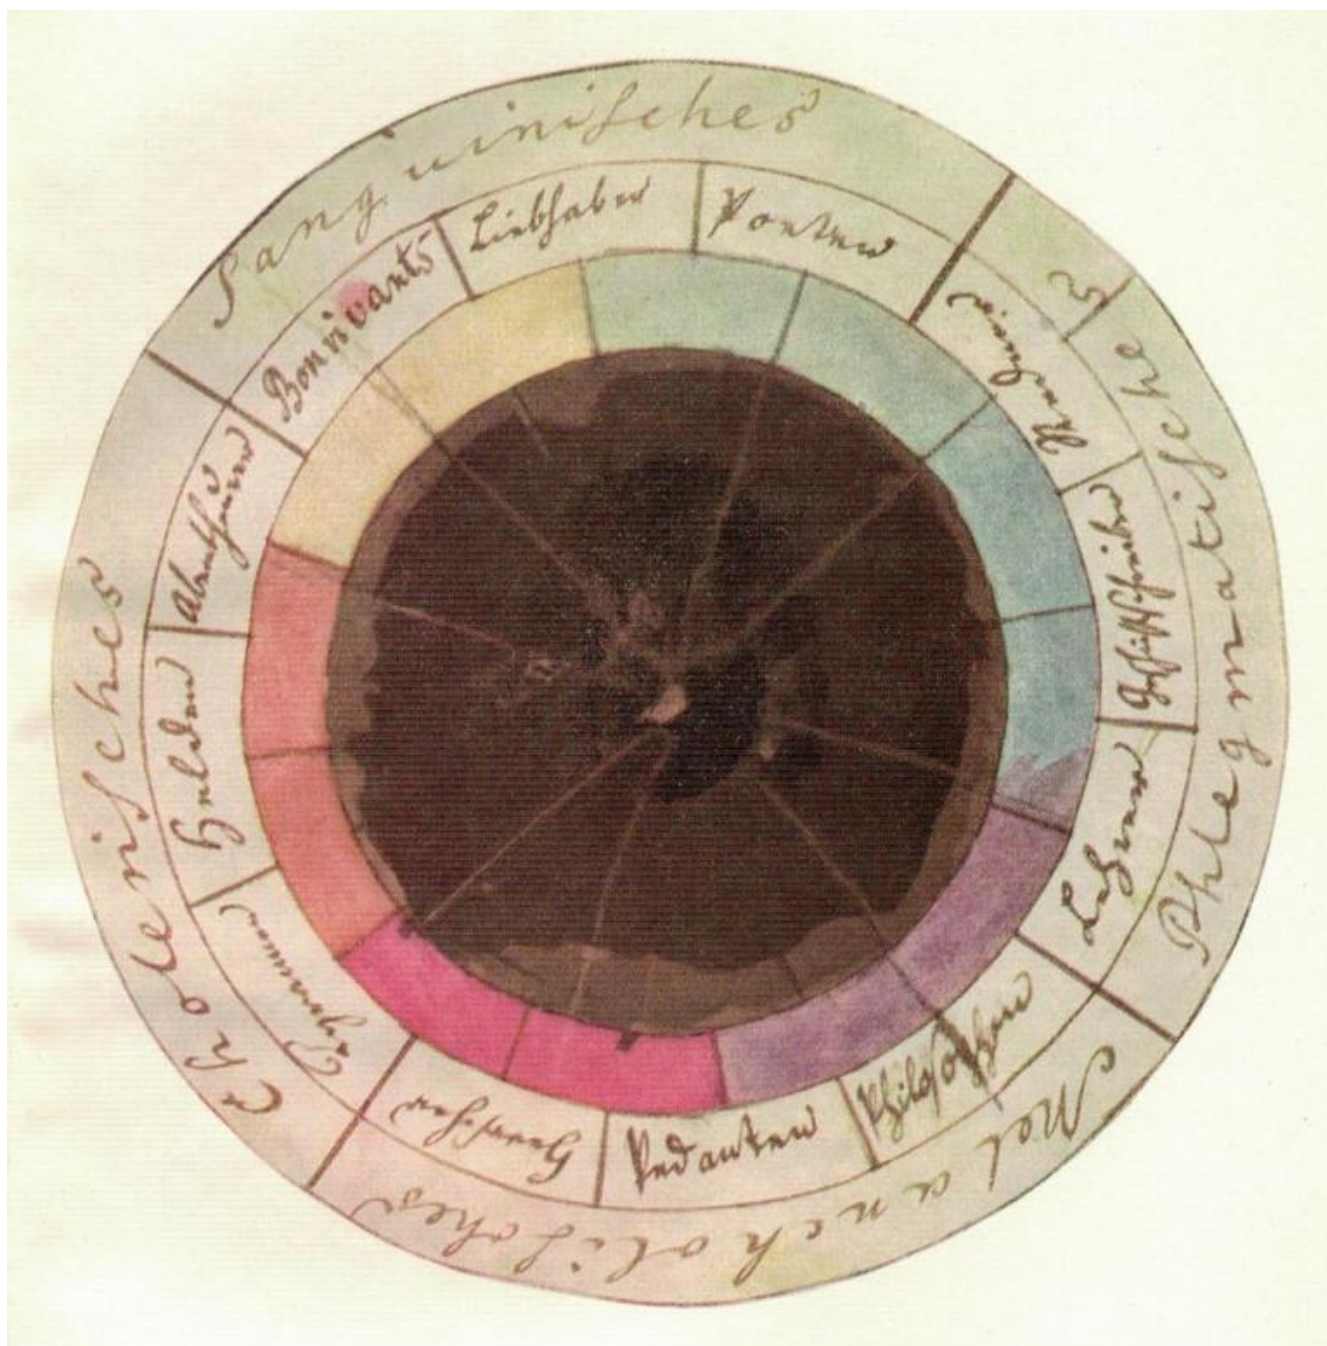 Sanguinisches
Phlegmatisches
Melancholisches
Cholerisches
Bonvivants
Liebhaber
Poeten
Redner
Geschichtschreiber
Lehrer
Philosophen
Pedanten
Herrscher
Tyrannen
Helden
Abentheurer